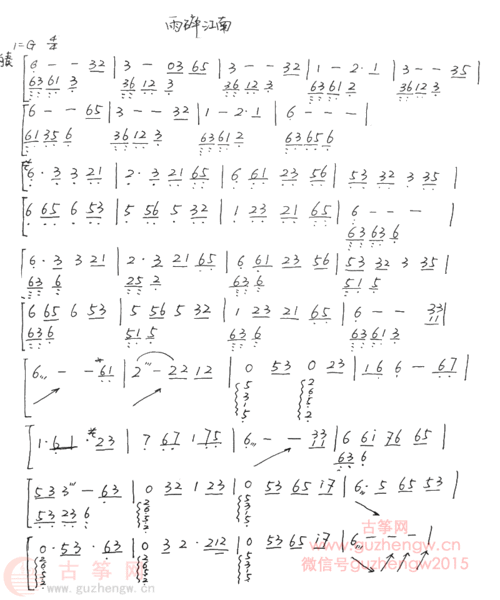 雨碎江南
1=G 4/4
6 - - 32 | 3 - 03 65 | 3 - - 32 | 1 - 2·1 | 3 - - 35 |
6361 3 3612 3 3612 3 6361 2 3612 3
6 - - 65 | 3 - - 32 | 1 - 2·1 | 6 - - - |
6135 6 3612 3 6361 2 6365 6
6· 3 3 21 | 2· 3 21 65 | 6 61 23 56 | 53 32 3 35 |
6 65 6 53 | 5 56 5 32 | 1 23 21 65 | 6 - - - |
6363 6
6· 3 3 21 | 2· 3 21 65 | 6 61 23 56 | 53 32 3 35 |
63 6 25 2 63 6 51 5
6 65 6 53 | 5 56 5 32 | 1 23 21 65 | 6 - - 33 |
11
63 6 51 5 63 6 6361 3
6 - - 61 | 2 - 22 12 | 0 53 0 23 | 16 6 - 67 |
1· 61 · 23 | 7 67 1 75 | 6 - - 33 | 6 6i 76 65 |
11
63 6
53 3 - 63 | 0 32 1 23 | 0 53 65 i7 | 6· 5 65 53 |
53 23 6
0· 53 · 63 | 0 3 2· 212 | 0 53 65 i7 | 6 - - - |
古筝网
www.guzhengw.cn
微信号guzhengw2015
古筝网
www.guzhengw.cn